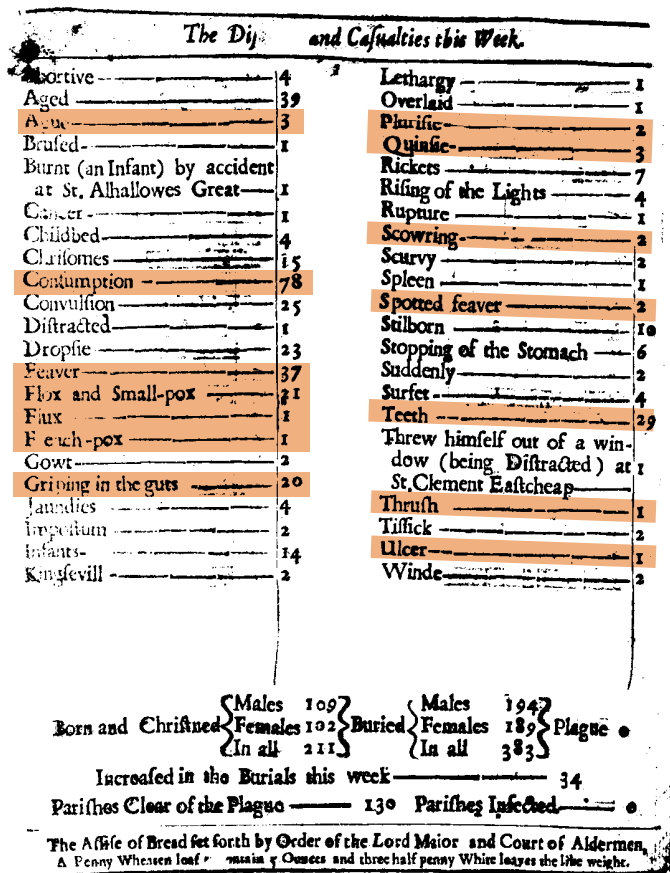 The Diſ and Caſualties this Week.
Abortive 4
Aged 39
Ague 3
Bruſed 1
Burnt (an Infant) by accident
at St. Alhallowes Great 1
Cancer 1
Childbed 4
Chriſomes 15
Conſumption 78
Convulſion 25
Diſtracted 1
Dropſie 23
Feaver 37
Flox and Small-pox 21
Flux 1
French-pox 1
Gowt 2
Griping in the guts 20
Jaundies 4
Impoſtum 2
Infants 14
Kingſevill 2
Lethargy 1
Overlaid 1
Pluriſie 2
Quinſie 3
Rickets 7
Riſing of the Lights 4
Rupture 1
Scowring 2
Scurvy 2
Spleen 1
Spotted feaver 2
Stilborn 10
Stopping of the Stomach 6
Suddenly 2
Surfet 4
Teeth 29
Threw himſelf out of a win-
dow (being Diſtracted) at 1
St.Clement Eaſtcheap
Thruſh 1
Tiſſick 2
Ulcer 1
Winde 2
Males 109 Males 194
Born and Chriſtned Females 102 Buried Females 189 Plague 0
In all 211 In all 383
Increaſed in the Burials this week 34
Pariſhes Clear of the Plague 130 Pariſhes Infected 0
The Aſſiſe of Bread ſet forth by Order of the Lord Maior and Court of Aldermen,
A Penny Wheaten loaf Ounces and three half penny White loaves the like weight.